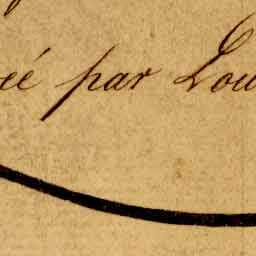 éé par Lou